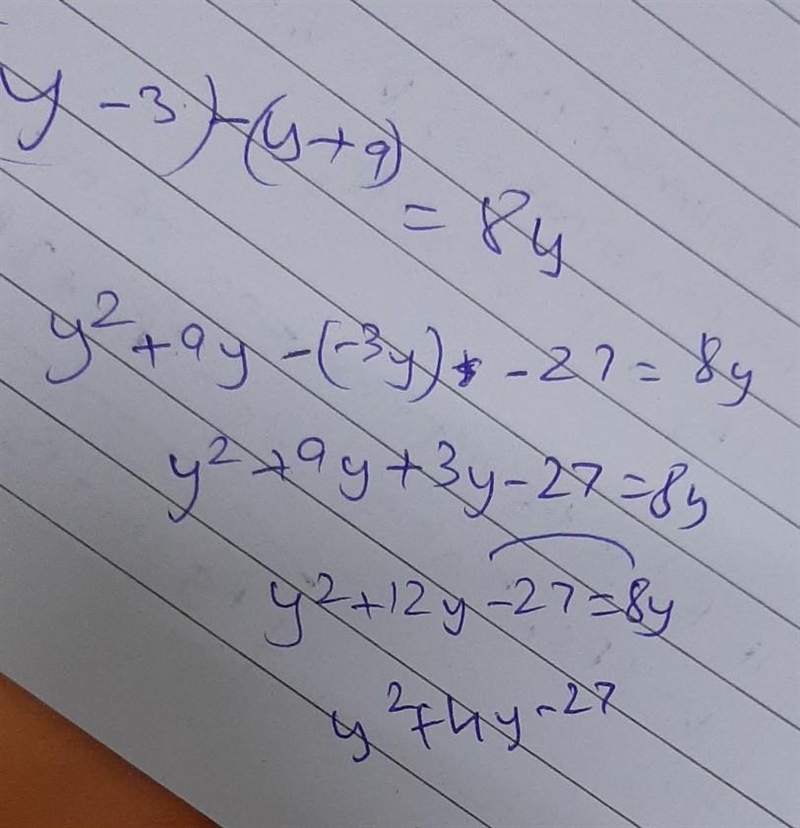 y - 3) - (y + 9) = 8y
y² + 9y - (-3y) - 27 = 8y
y² + 9y + 3y - 27 = 8y
y² + 12y - 27 = 8y
y² + 4y - 27